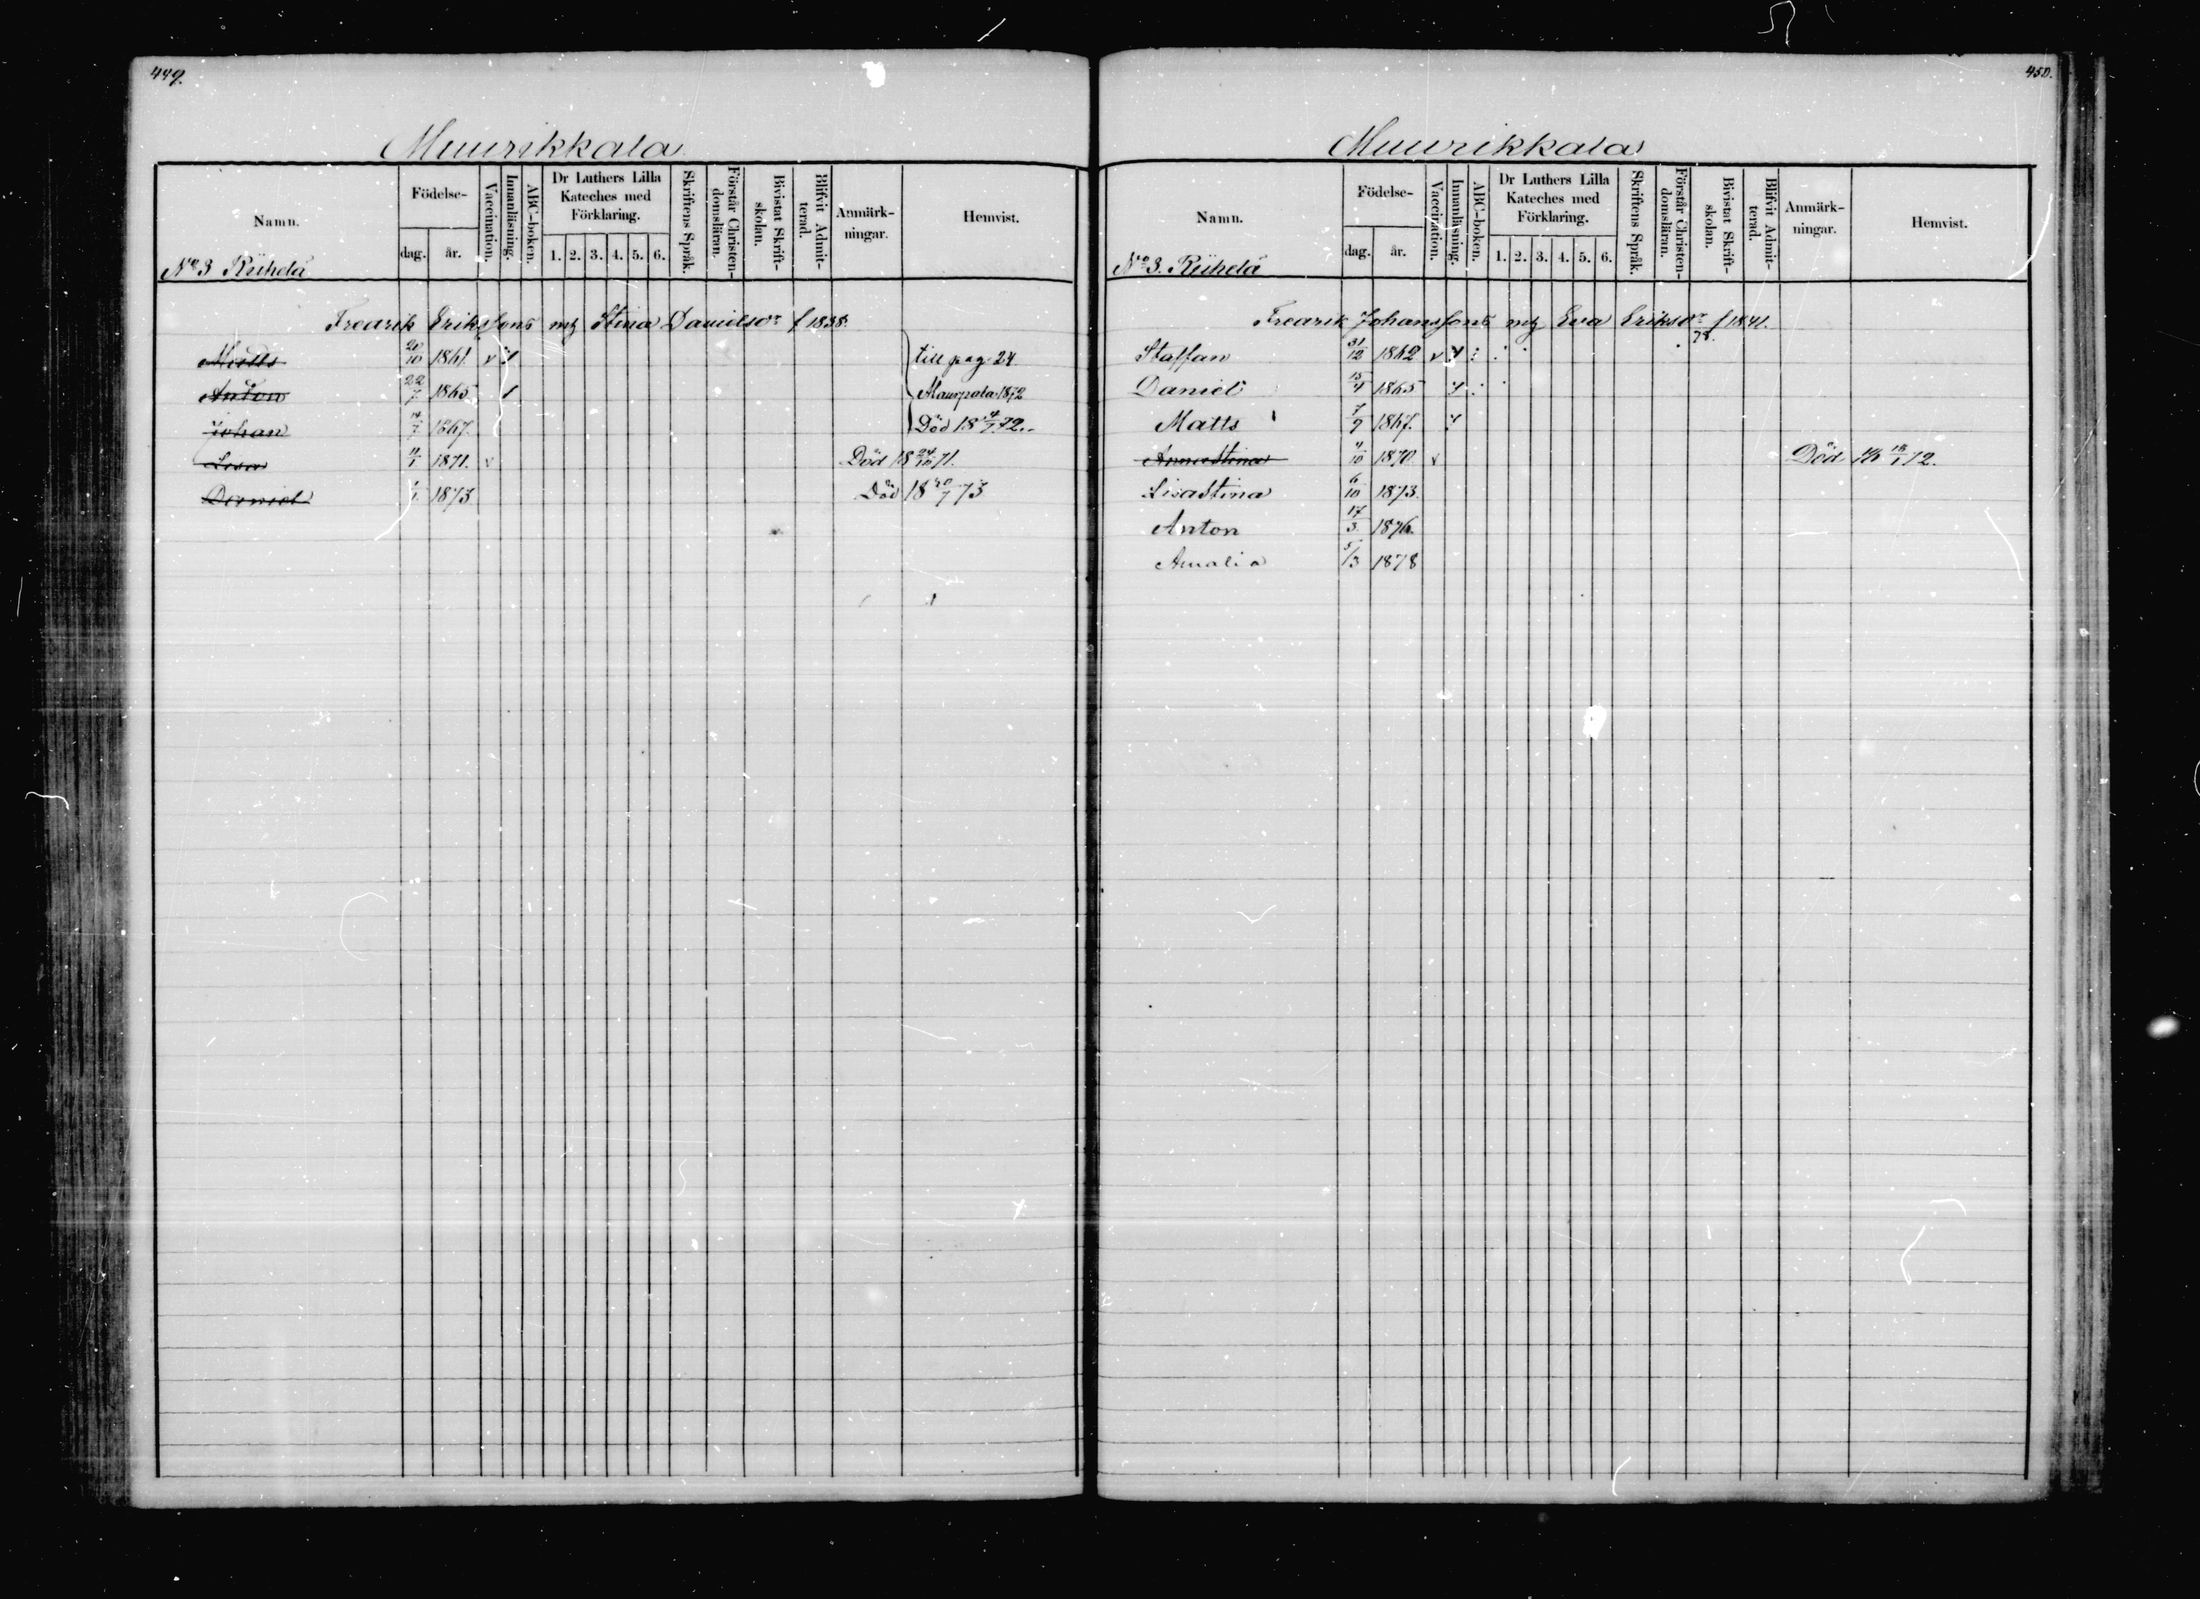 449.
Muurikkala
Namn.
Födelse-
dag. år.
Vaccination.
Innanläsning.
ABC-boken.
Dr Luthers Lilla Kateches med Förklaring.
1. 2. 3. 4. 5. 6.
Skriftens Språk.
Förstår Christen-domsläran.
Bivistat Skrift-skolan.
Blifvit Admit-terad.
Anmärk-ningar.
Hemvist.
No 3 Riihelä
Fredrik Erikssons mg Stina Danielsdr f 1838.
Matts 20/10 1861. v till pag. 24
Anton 22/7 1865 1872
Johan 14/7 1867. Död 18 4/7 72.
Lisa 11/1 1871. v Död 18 24/10 71.
Daniel 1/1 1873 Död 18 20/7 73
450.
Muurikkala
Namn.
Födelse-
dag. år.
Vaccination.
Innanläsning.
ABC-boken.
Dr Luthers Lilla Kateches med Förklaring.
1. 2. 3. 4. 5. 6.
Skriftens Språk.
Förstår Christen-domsläran.
Bivistat Skrift-skolan.
Blifvit Admit-terad.
Anmärk-ningar.
Hemvist.
No 3. Riihelä
Fredrik Johanssons mg Eva Eriksdr f 1841.
Staffan 31/12 1862 v 78.
Daniel 15/4 1865
Matts 7/9 1867.
Annastina 11/10 1870. v Död 18 18/1 72.
Lisastina 6/10 1873.
Anton 17/3 1876.
Amalia 5/3 1878